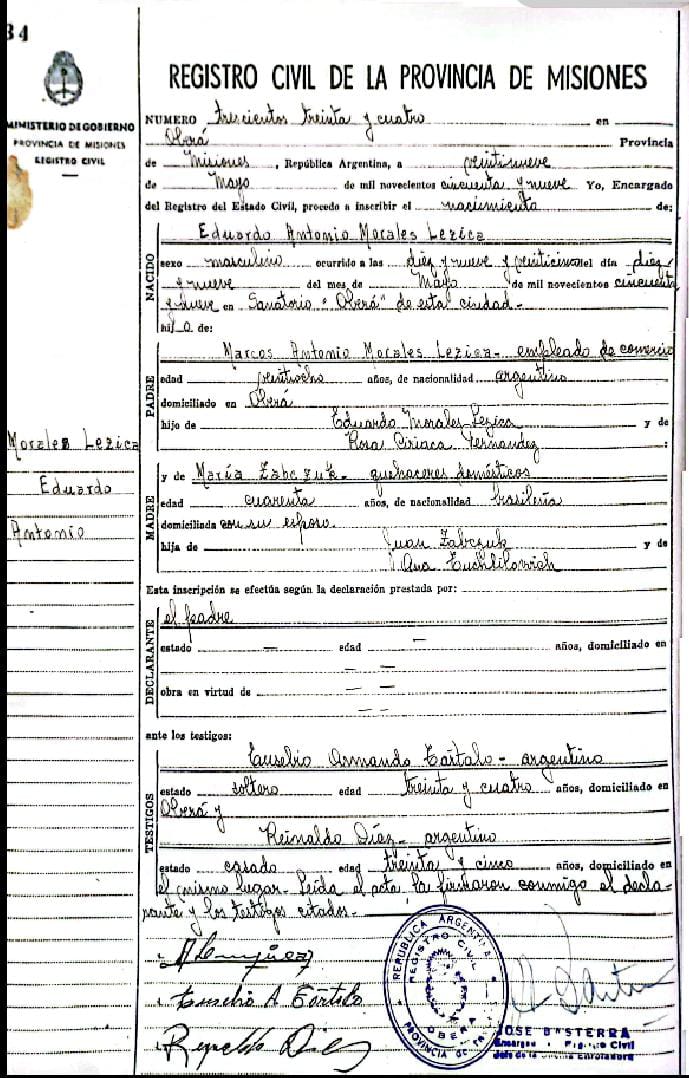 34
MINISTERIO DE GOBIERNO
PROVINCIA DE MISIONES
REGISTRO CIVIL
Morales Lezica
Eduardo
Antonio
REGISTRO CIVIL DE LA PROVINCIA DE MISIONES
NUMERO trescientos treinta y cuatro en
Oberá Provincia
de Misiones, República Argentina, a veintinueve
de Mayo de mil novecientos cincuenta y nueve Yo, Encargado
del Registro del Estado Civil, procedo a inscribir el nacimiento de:
NACIDO
Eduardo Antonio Morales Lezica
sexo masculino ocurrido a las diez y nueve y veinticinco del día diez
y nueve del mes de Mayo de mil novecientos cincuenta
y nueve en Sanatorio "Oberá" de esta ciudad.-
hijo de:
PADRE
Marcos Antonio Morales Lezica- empleado de comercio
edad veintiocho años, de nacionalidad argentino
domiciliado en Oberá
hijo de Eduardo Morales Lezica y de
Rosa Ciriaca Fernandez :
MADRE
y de María Zabczuk- quehaceres domésticos
edad cuarenta años, de nacionalidad brasileña
domiciliada con su esposo
hija de Juan Zabczuk y de
Ana
Esta inscripción se efectúa según la declaración prestada por:
DECLARANTE
el padre
estado — edad — años, domiciliado en
— —
obra en virtud de — —
— —
ante los testigos:
TESTIGOS
Eusebio Armando Tortolo- argentino
estado soltero edad treinta y cuatro años, domiciliado en
Oberá y
Reinaldo Díaz- argentino
estado casado edad treinta y cinco años, domiciliado en
el mismo lugar- Leída el acta, la firmaron conmigo el decla-
rante y los testigos citados.-
Eusebio A Tortolo
REPUBLICA ARGENTINA
REGISTRO CIVIL
OBERA
PROVINCIA DE
JOSE BASTERRA
Encargado Registro Civil
Jefe de la Oficina Enroladora